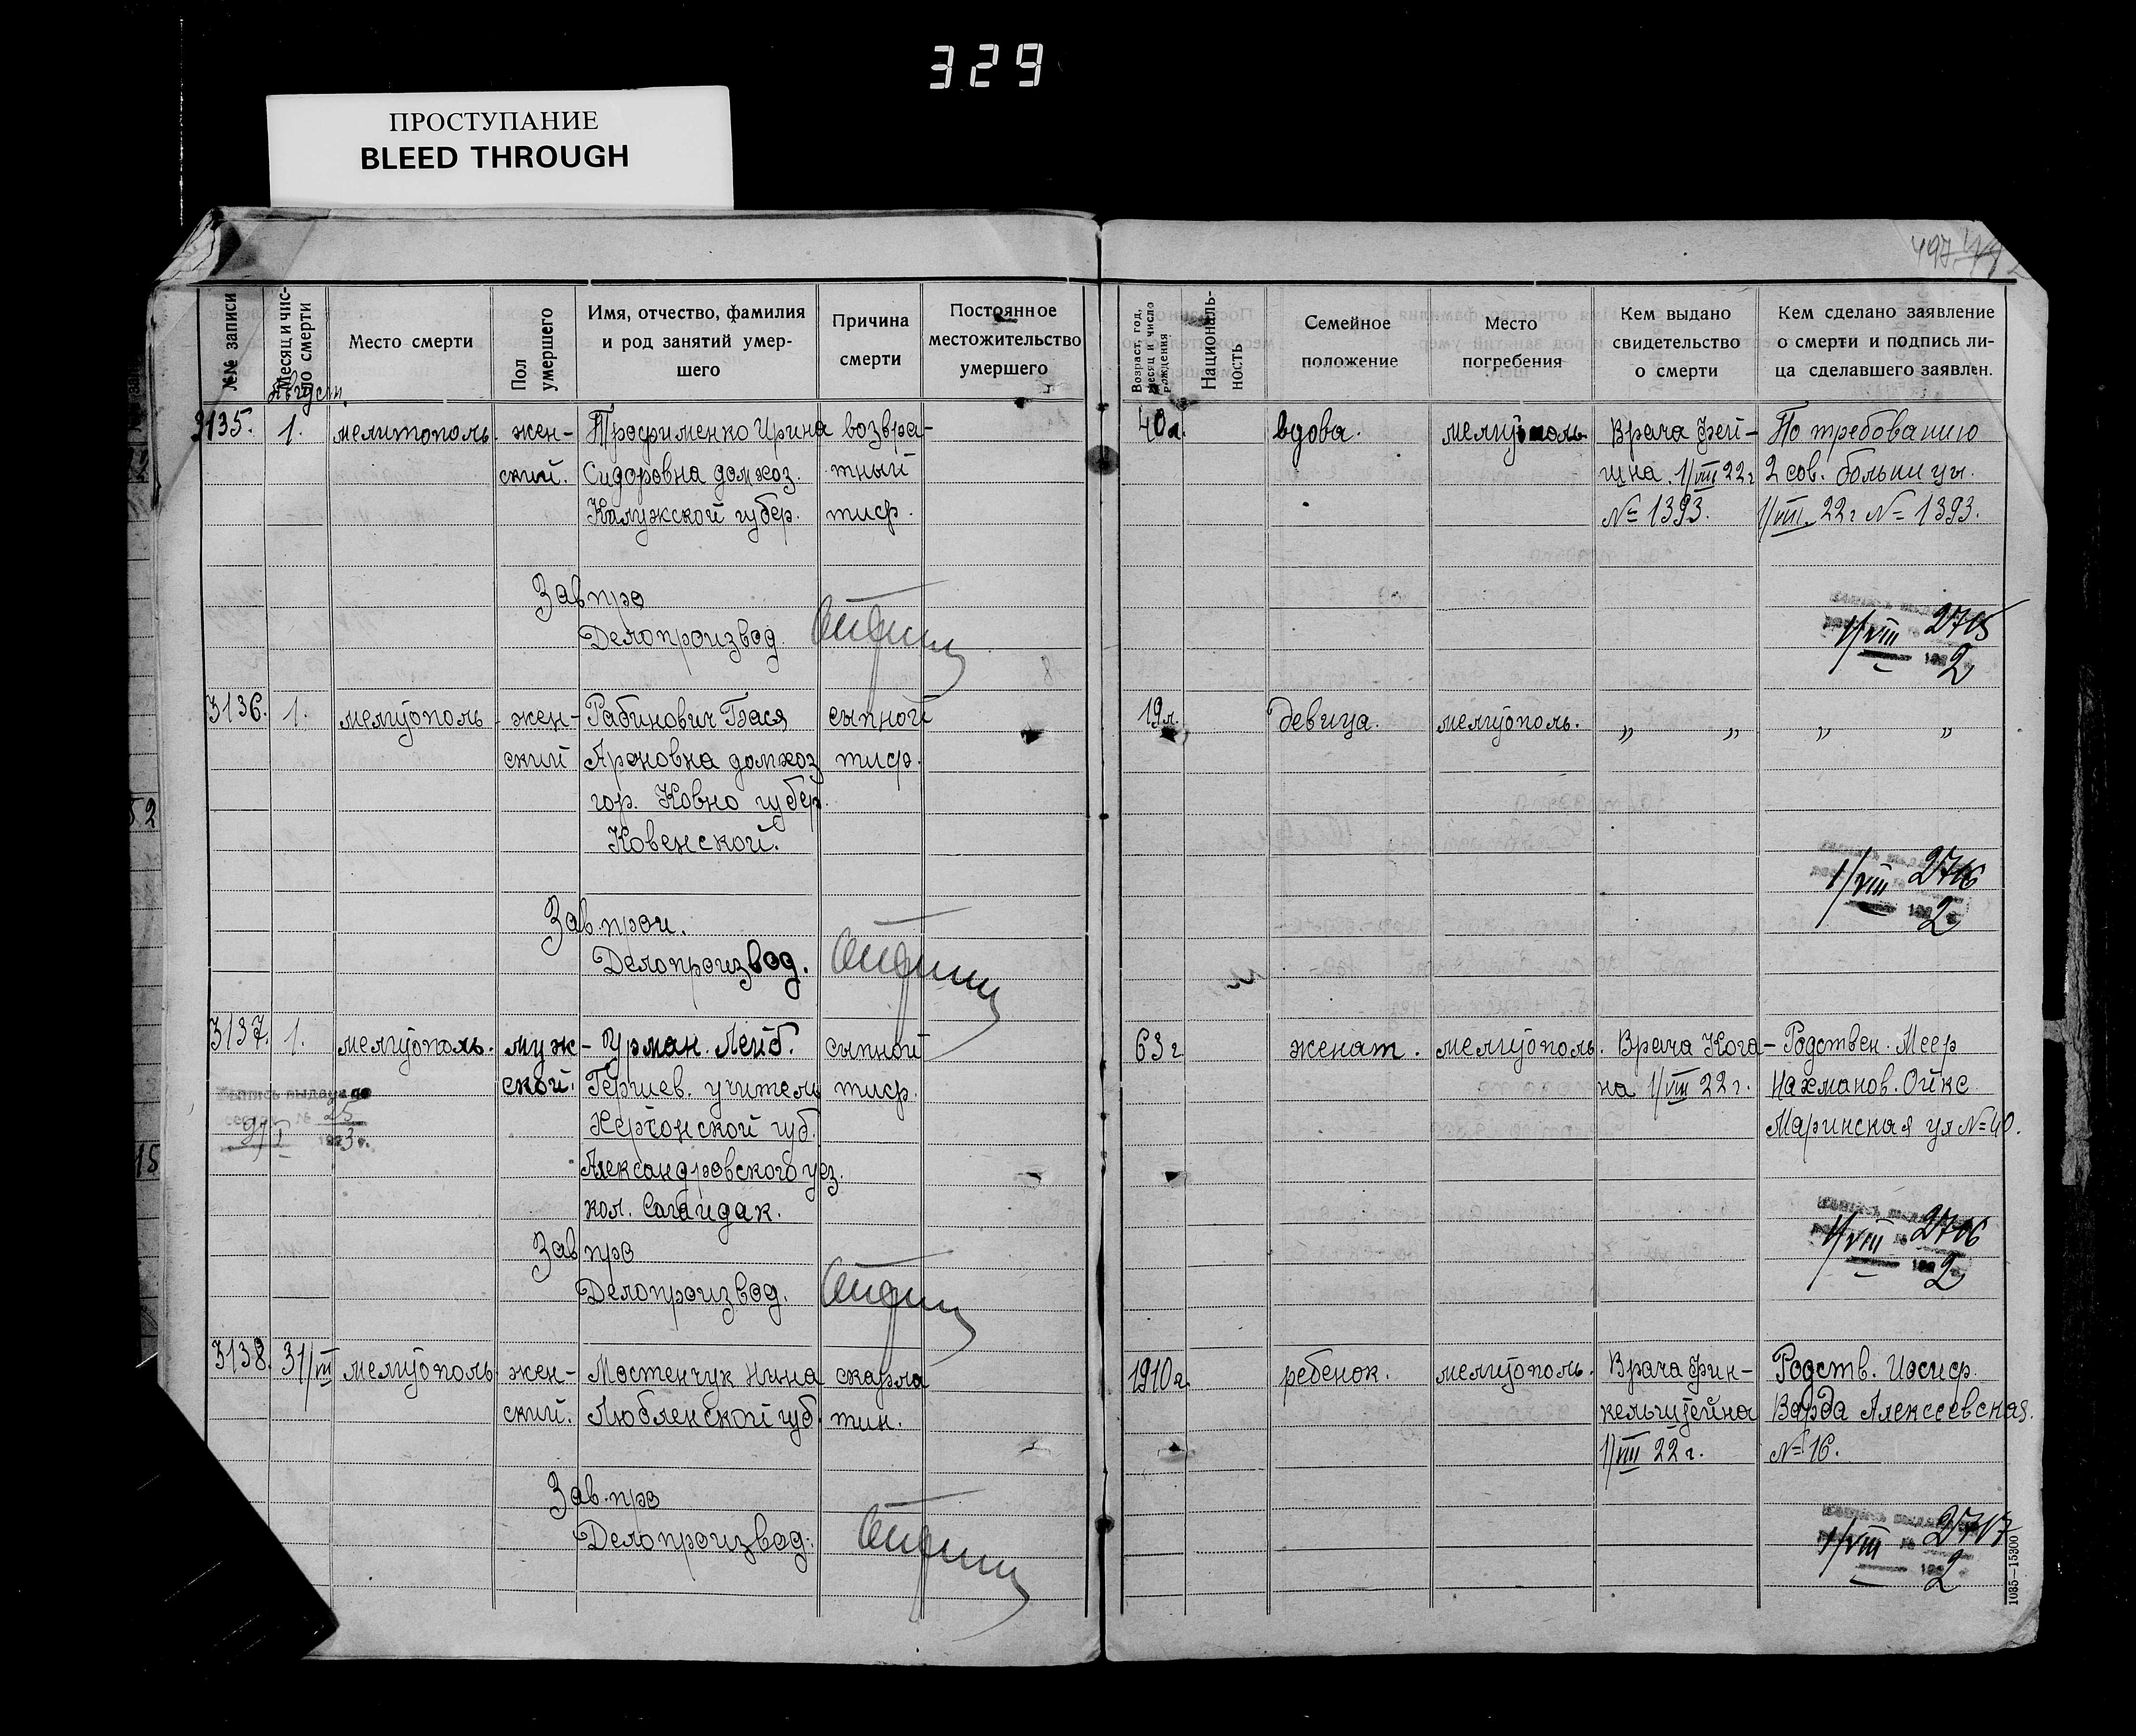 329
ПРОСТУПАНИЕ
BLEED THROUGH
497
№№ записи
Месяц и чис-
ло смерти
Август.
Место смерти
Пол
умершего
Имя, отчество, фамилия
и род занятий умер-
шего
Причина
смерти
Постоянное
местожительство
умершего
Возраст, год,
месяц и число
рождения
Националь-
ность
Семейное
положение
Место
погребения
Кем выдано
свидетельство
о смерти
Кем сделано заявление
о смерти и подпись ли-
ца сделавшего заявлен.
3135. 1. мелитополь. жен- Трофименко Ирина возвра- 40л. вдова. мелитополь Врача Фей- По требованию
ский. Сидоровна домхоз. тный гина. 1/VIII 22г 2 сов. больницы.
Калужской губер. тиф. № 1393. 1/VIII. 22г № 1393.
Зав про
Делопроизвод.
1/VIII 2715
2
3136. 1. мелитополь жен- Рабинович Бася сыпной 19л. девица. мелитополь. „ „ „ „
ский Ароновна домхоз тиф.
гор. Ковно губер.
Ковенской.
Зав. прои.
Делопроизвод.
1/VIII 2716
2
3137. 1. мелитополь. муж- Урман. Лейб. сыпной 63г женат. мелитополь. Врача Кога- Родствен. Меер
ской. Гершев. учитель тиф. на 1/VIII 22г. Нахманов. Ойкс
Херсонской губ. Маринская ул №40.
Запись выдана
25
1923 г.
Александровского уез.
кол. Сагайдак.
Зав про
Делопроизвод.
1/VIII 2716
2
3138. 31/VII мелитополь жен- Мостенчук Нина скарла 1910г. ребенок. мелитополь. Врача Фин- Родств. Иосиф.
ский. Любленской губ. тин. кельштейна Варда Алексеевская.
1/VIII 22г. №16.
Зав. про
Делопроизвод.
1/VIII 2717
2
1085—15300
52
15